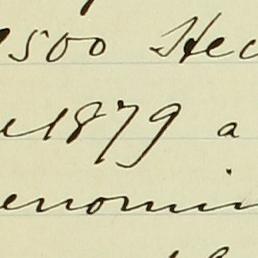 500 Hec
1879 a
enomin